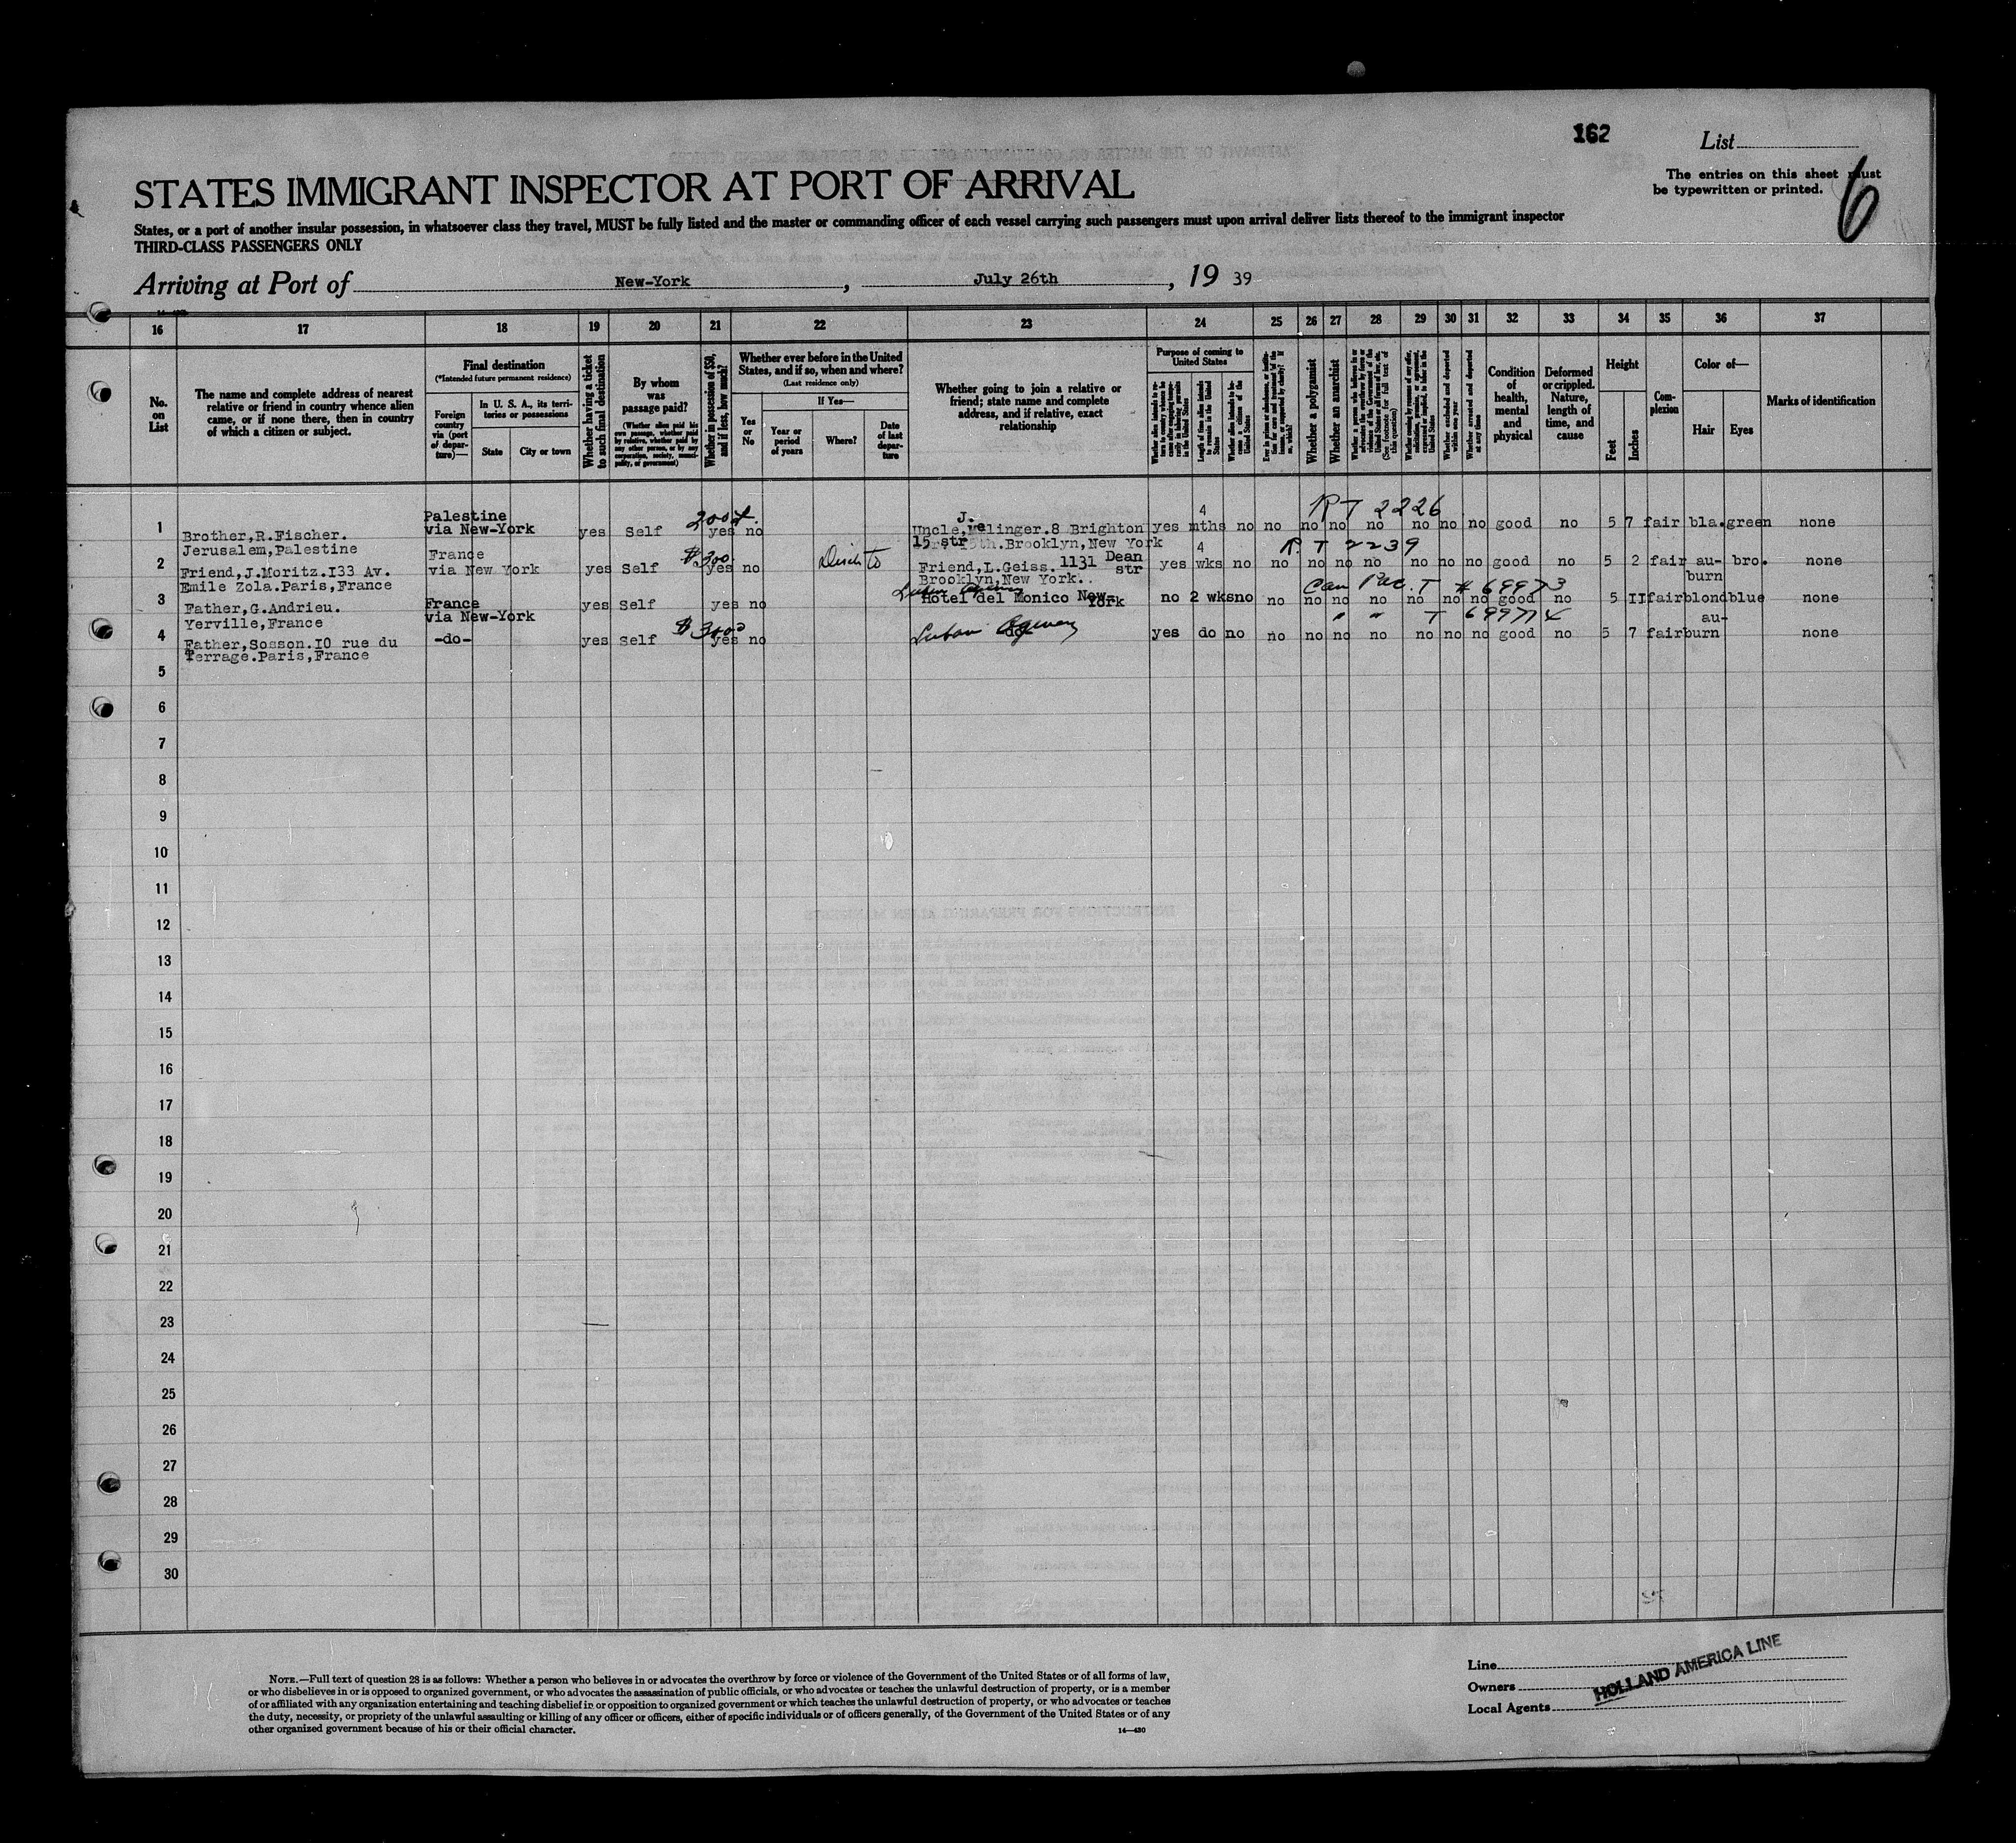 162
List
The entries on this sheet must
be typewritten or printed.
6
STATES IMMIGRANT INSPECTOR AT PORT OF ARRIVAL
States, or a port of another insular possession, in whatsoever class they travel, MUST be fully listed and the master or commanding officer of each vessel carrying such passengers must upon arrival deliver lists thereof to the immigrant inspector
THIRD-CLASS PASSENGERS ONLY
Arriving at Port of New-York, July 26th, 19 39
16 17 18 19 20 21 22 23 24 25 26 27 28 29 30 31 32 33 34 35 36 37
No. on List
The name and complete address of nearest
relative or friend in country whence alien
came, or if none there, then in country
of which a citizen or subject.
Final destination
(*Intended future permanent residence)
Foreign country via (port of departure)—
In U. S. A., its territories or possessions
State
City or town
Whether having a ticket to such final destination
By whom was passage paid?
(Whether alien paid his own passage, whether paid by relative, whether paid by any other person, or by any corporation, society, municipality, or government)
Whether in possession of $50, and if less, how much?
Whether ever before in the United States, and if so, when and where?
(Last residence only)
Yes or No
If Yes—
Year or period of years
Where?
Date of last departure
Whether going to join a relative or
friend; state name and complete
address, and if relative, exact
relationship
Purpose of coming to United States
Length of time alien intends to remain in the United States
Whether alien intends to become a citizen of the United States
Whether a polygamist
Whether an anarchist
(See footnote for full text of this question)
Whether excluded and deported within one year
Whether arrested and deported at any time
Condition of health, mental and physical
Deformed or crippled. Nature, length of time, and cause
Height
Feet
Inches
Complexion
Color of—
Hair
Eyes
Marks of identification
1 Brother,R.Fischer.
Jerusalem,Palestine
Palestine
via New-York
yes Self 200 yes no
J.
15 str
Brooklyn,New York
yes 4 mths no no no no no no no no good no 5 7 fair bla. green none
RT 2226
2 Friend,J.Moritz.I33 Av.
Emile Zola.Paris,France
France
via New York
yes Self $300 yes no
Friend,L.Geiss. 1131 Dean str
Brooklyn,New York..
yes 4 wks no no no no no no no no good no 5 2 fair auburn bro. none
R T 2239
3 Father,G.Andrieu.
Yerville,France
France
via New-York
yes Self yes no
Hotel del Monico New-York
no 2 wks no no no no no no no no good no 5 II fair blond blue none
Can Pac. T # 699773
4 Father,Sosson.I0 rue du
Terrage.Paris,France
-do-
yes Self $300 yes no
do
yes do no no no no no no no no good no 5 7 fair auburn none
" " T 699774
5
6
7
8
9
10
11
12
13
14
15
16
17
18
19
20
21
22
23
24
25
26
27
28
29
30
NOTE.—Full text of question 28 is as follows: Whether a person who believes in or advocates the overthrow by force or violence of the Government of the United States or of all forms of law,
or who disbelieves in or is opposed to organized government, or who advocates the assassination of public officials, or who advocates or teaches the unlawful destruction of property, or is a member
of or affiliated with any organization entertaining and teaching disbelief in or opposition to organized government or which teaches the unlawful destruction of property, or who advocates or teaches
the duty, necessity, or propriety of the unlawful assaulting or killing of any officer or officers, either of specific individuals or of officers generally, of the Government of the United States or of any
other organized government because of his or their official character.
14—430
Line
Owners
Local Agents
HOLLAND AMERICA LINE